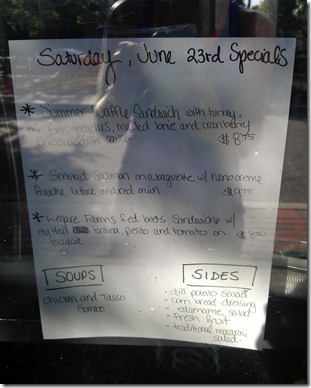 Saturday, June 23rd Specials
* Summer Waffle Sandwich with turkey,
melted brie and cranberry
$8.75
* Smoked Salmon on a baguette w/
fraiche, lettuce and red onion $9.75
* Farms Red beets Sandwiche w/
melted fontina, pesto and tomato on $8.50
focaccia
SOUPS
Chicken and Tasso
Gumbo
SIDES
• dill potato salad
• corn bread dressing
• edamame salad
• Fresh fruit
• traditional macaroni
salad